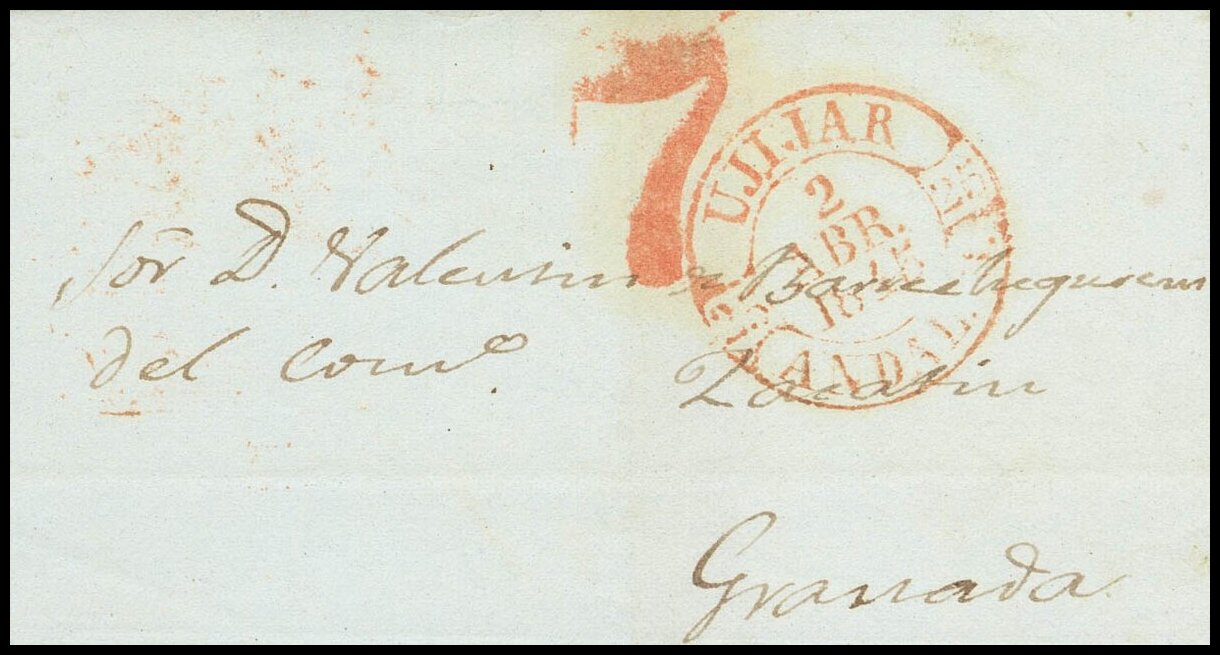 7
UJIJAR
2
ABR.
ANDAL.
Sor D. Valentin Barrecheguren
del Com.o Zacatin
Granada